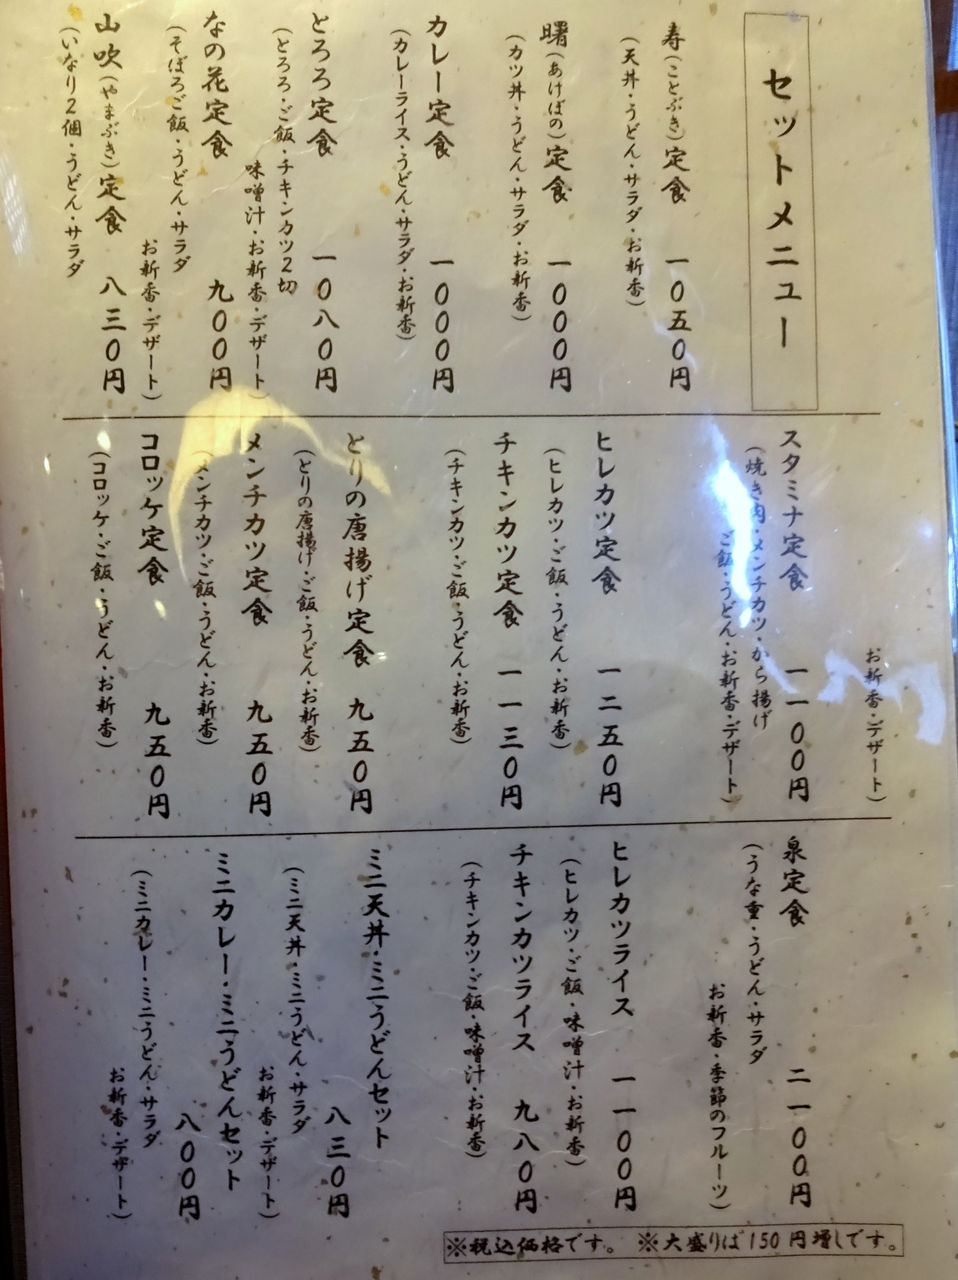 セットメニュー
寿(ことぶき)定食 一〇五〇円
(天丼・うどん・サラダ・お新香)
曙(あけぼの)定食 一〇〇〇円
(カツ丼・うどん・サラダ・お新香)
カレー定食 一〇〇〇円
(カレーライス・うどん・サラダ・お新香)
とろろ定食 一〇八〇円
(とろろ・ご飯・チキンカツ2切
味噌汁・お新香・デザート)
なの花定食 九〇〇円
(そぼろご飯・うどん・サラダ
お新香・デザート)
山吹(やまぶき)定食 八三〇円
(いなり2個・うどん・サラダ
お新香・デザート)
スタミナ定食 一一〇〇円
(焼き肉・メンチカツ・から揚げ
ご飯・うどん・お新香・デザート)
ヒレカツ定食 一二五〇円
(ヒレカツ・ご飯・うどん・お新香)
チキンカツ定食 一一三〇円
(チキンカツ・ご飯・うどん・お新香)
とりの唐揚げ定食 九五〇円
(とりの唐揚げ・ご飯・うどん・お新香)
メンチカツ定食 九五〇円
(メンチカツ・ご飯・うどん・お新香)
コロッケ定食 九五〇円
(コロッケ・ご飯・うどん・お新香)
泉定食 二一〇〇円
(うな重・うどん・サラダ
お新香・季節のフルーツ)
ヒレカツライス 一一〇〇円
(ヒレカツ・ご飯・味噌汁・お新香)
チキンカツライス 九八〇円
(チキンカツ・ご飯・味噌汁・お新香)
ミニ天丼・ミニうどんセット 八三〇円
(ミニ天丼・ミニうどん・サラダ
お新香・デザート)
ミニカレー・ミニうどんセット 八〇〇円
(ミニカレー・ミニうどん・サラダ
お新香・デザート)
※税込価格です。 ※大盛りは150円増しです。